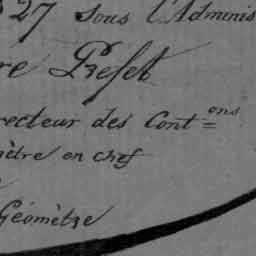 27 sous l'Adminis
re Prefet
recteur des Cont^ons
mètre en chef
Géomètre